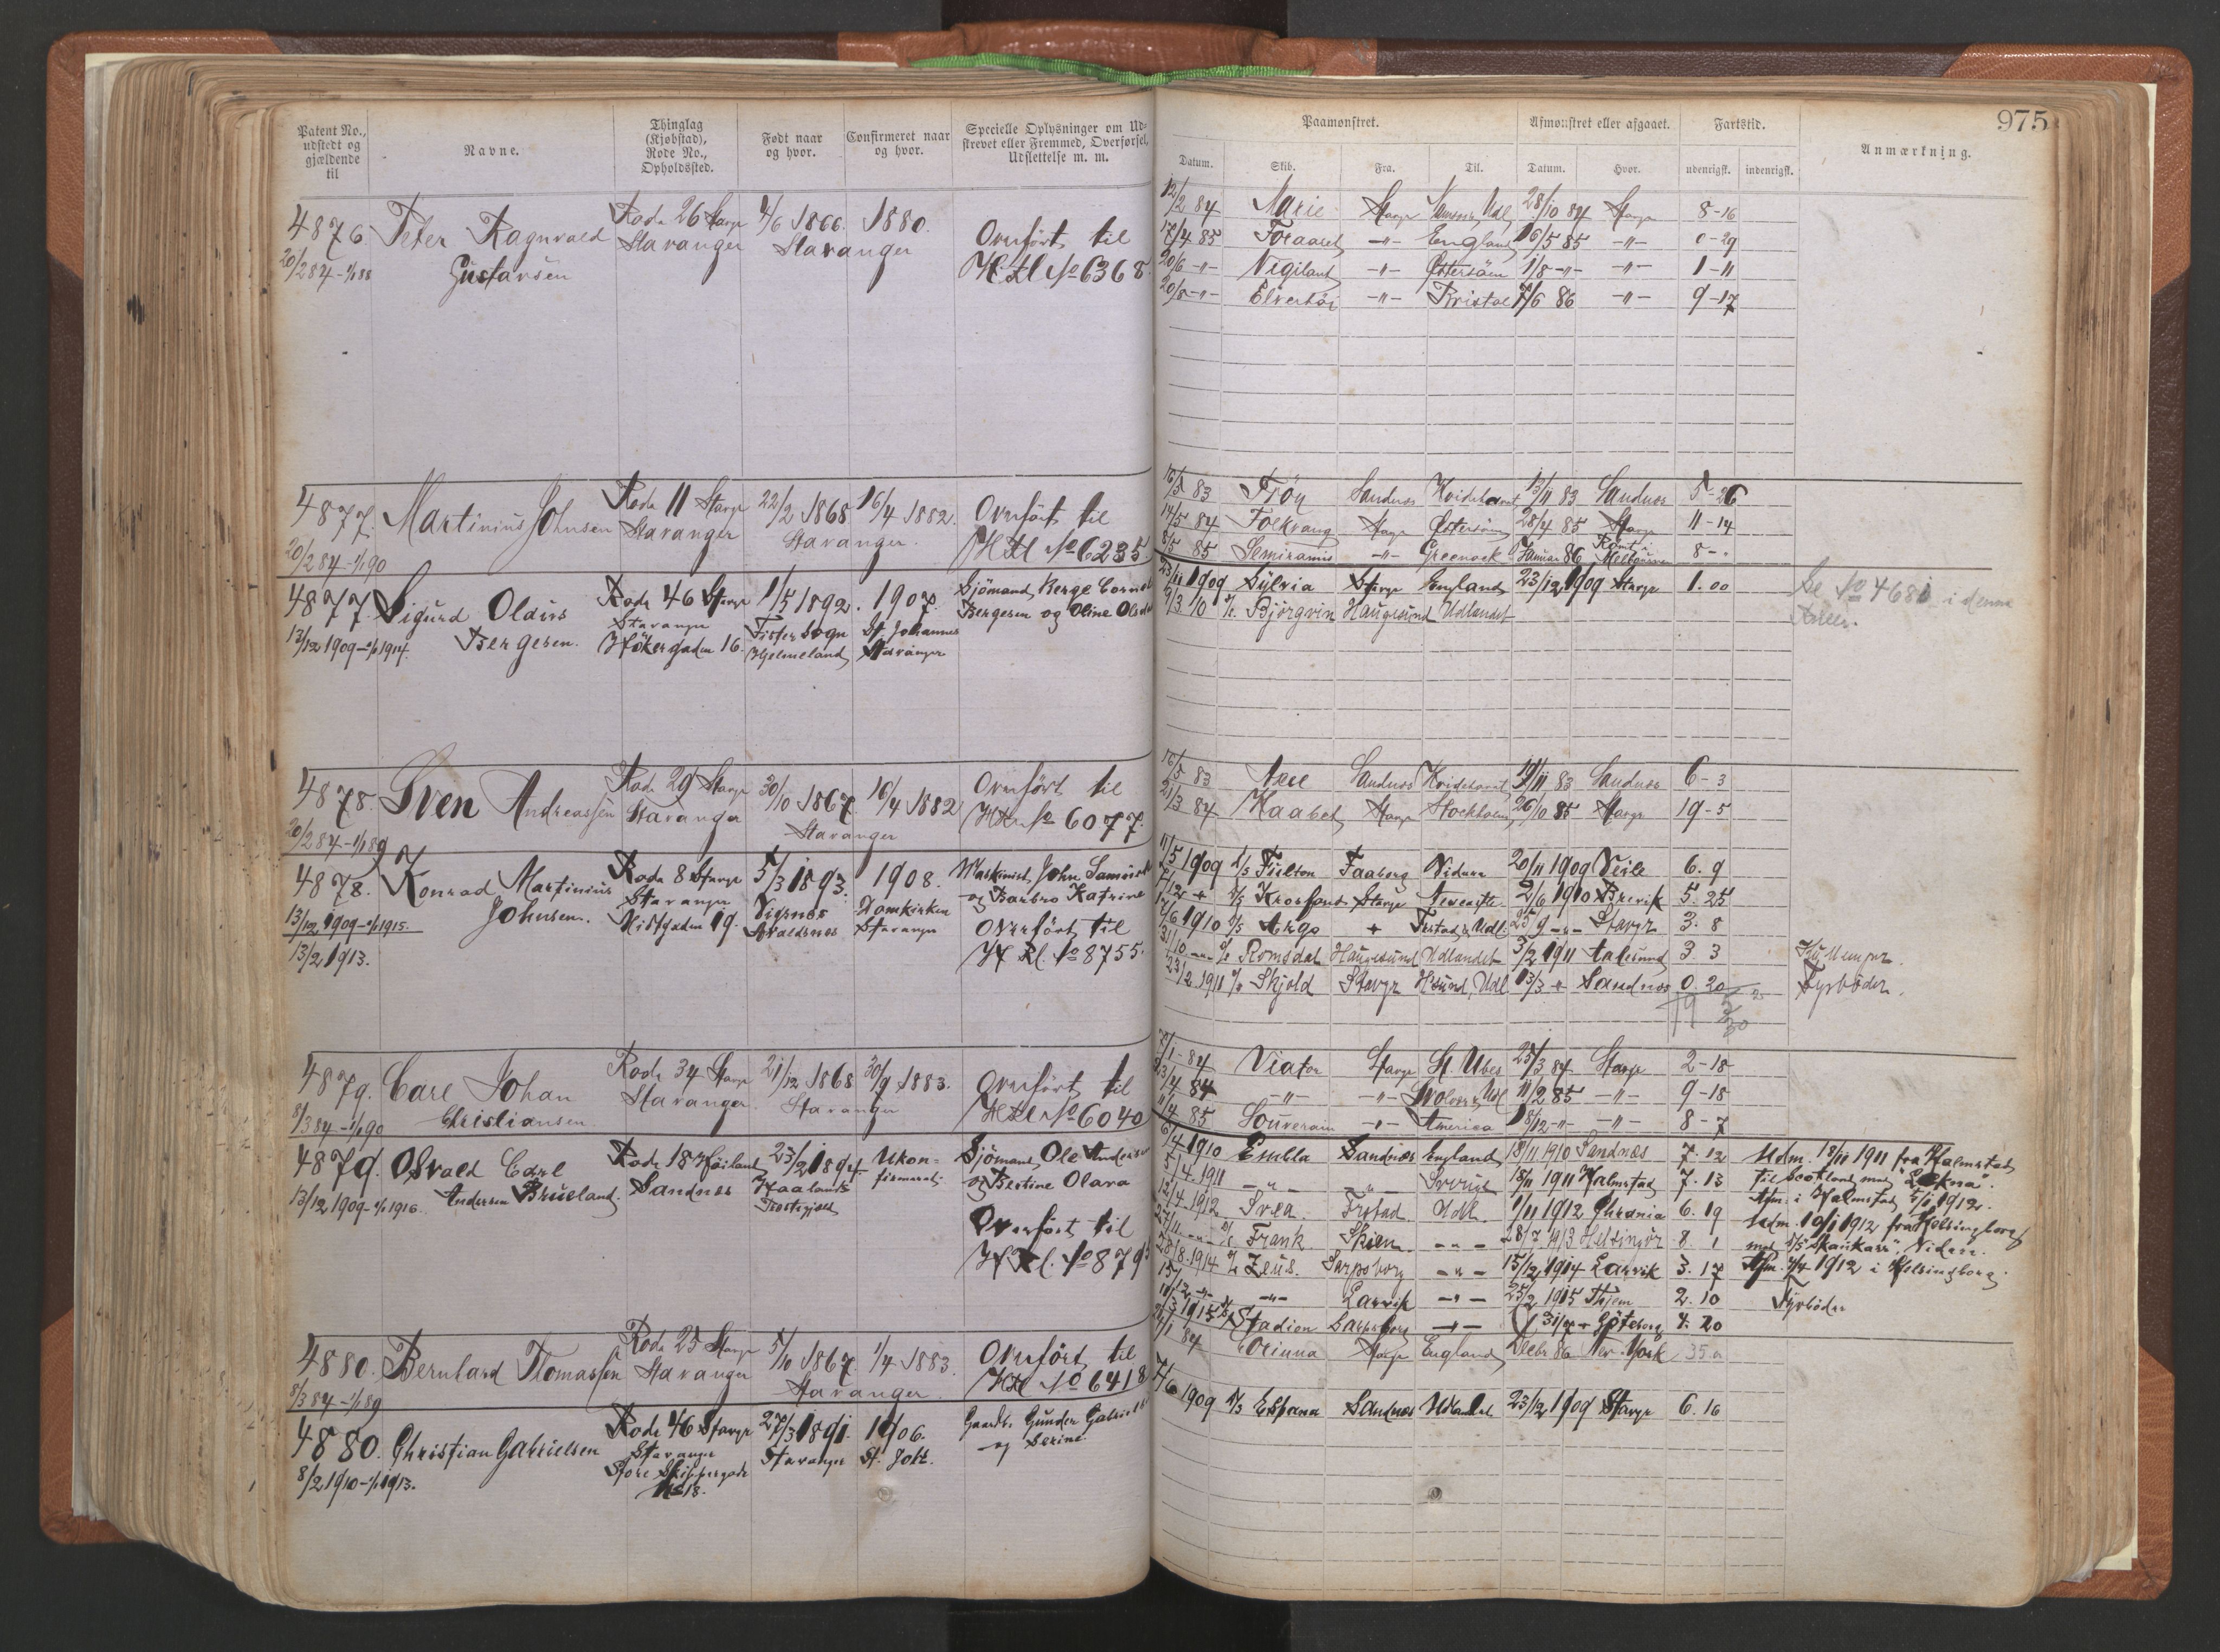 975
Patent No., udstedt og gjældende til
Navne.
Thinglag (Kjøbstad), Rode No., Opholdssted.
Født naar og hvor.
Confirmeret naar og hvor.
Specielle Oplysninger om Udskrevet eller Fremmed, Overførsel, Udslettelse m. m.
Paamønstret.
Afmønstret eller afgaaet.
Fartstid.
Anmærkning.
Datum. Skib. Fra. Til. Datum. Hvor. udenrigsk. indenrigsk.
4876. Peter Ragnvald Rode 26 Stavgr 4/6 1866. 1880.
20/2 84 - 1/1 88 Gustavsen Stavanger Stavanger
Overført til
H Rl No 6368.
12/2 84 Marie Stavgr 28/10 84 Stavgr 8-16
17/4 85 -"- England 16/5 85 -"- 0-29
20/6 -"- Vigilant -"- Østersöen 1/8 -"- -"- 1-11
20/8 -"- -"- Bristol 7/6 86 -"- 9-17
4877. Martinius Johnsen Rode 11 Stavgr 22/2 1868 16/4 1882.
20/2 84 - 1/1 90 Stavanger Stavanger.
Overført til
H Rl No 6235
16/5 83 Fröy Sandnes Hvidehavet 13/11 83 Sandnes 5-26
14/5 84 Folkvang Stavgr Østersöen 28/4 85 Stavgr 11-14
8/5 85 Semiramis -"- Greenock Januar 86 Rømt i Melbourne 8-"
4877. Sigurd Olaus Rode 46 Stavgr 1/5 1892. 1907.
13/12 1909 - 1/1 1914. Bergesen. Stavanger Fister Sogn St. Johannes
Hökergaden 16. Hjelmeland Stavanger
Sjömand Berge Cornel
Bergesen og Oline Olsd
23/11 1909 Sylvia Stavgr England 23/12 1909 Stavgr 1.00
9/3 10 Bjørgvin Haugesund Udlandet
Se No 4680 i denne
4878. Sven Andreassen Rode 29 Stavgr 30/10 1867. 16/4 1882
20/2 84 - 1/1 89 Stavanger Stavanger
Overført til
H Rl No 6077.
16/5 83 Axel Sandnes Hvidehavet 19/11 83 Sandnes 6-3
21/3 84 Haabet Stavgr Stockholm 26/10 85 Stavgr 19-5
4878. Konrad Martinius Rode 8 Stavgr 5/3 1893. 1908.
13/12 1909 - 1/1 1915. Johnsen. Stavanger Vigsnes Domkirken
13/2 1913. Nistgaden 19. Avaldsnes Stavanger
Maskinist John
og Barbro Katrine
Overført til
H Rl. No 8755.
11/5 1909 Faaborg Videre 20/11 1909 Veile 6.9
Stavgr 2/6 1910 Brevik 5.25
1910 Argo Fristad, Udl. 25/9 -"- Stavgr 3.8
31/10 -"- Romsdal Haugesund Udlandet 3/2 1911 Aalesund 3.3
23/2 1911 Skjold Stavgr Hsund, Udl 13/3 Sandnes 0.20
Kullemper.
Fyrböder.
4879. Carl Johan Rode 34 Stavgr 21/12 1868 30/9 1883.
8/3 84 - 1/1 90 Christiansen Stavanger. Stavanger
Overført til
H Rl No 6040
7/1 - 84 Viator Stavgr St. Ubes 25/3 84 Stavgr 2-18
23/4 84 -"- -"- 11/2 85 -"- 9-18
11/4 85 Souverain -"- America 18/12 -"- -"- 8-7
4879. Osvald Carl Rode 18 Høiland 23/2 1894 Ukon-
13/12 1909 - 1/1 1916. Andersen Brueland. Sandnes Haalands firmeret
Prestegjæld
Sjömand Ole Andersen
og Bertine Olava
Overført til
H Rl. No 879
6/4 1910 Embla Sandnes England 18/11 1910 Sandnes 7.12
5/4 1911 -"- -"- Sverige 18/11 1911 Halmstad 7.13
12/4 1912 Svea Fristad Udl. 1/11 1912 Chrania 6.19
27/11 -"- Frank Skien -"- 28/7 1913 Helsingör 8.1
28/8 1914 Zeus. Sarpsborg -"- 15/12 1914 Larvik 3.17
-"- Larvik -"- 25/2 1915 Thjem 2.10
1915 Stadion Sarpsborg -"- Göteborg 4.20
Udm. 18/11 1911 fra Halmstad
til Scotland med
Afm. i Halmstad 5/1 1912.
Udm. 10/1 1912 fra Helsingborg
med Videre.
Afm. 4/4 1912 i Helsingborg.
Fyrböder
4880. Bernhard Thomassen Rode 25 Stavgr 5/10 1867. 1/4 1883.
8/3 84 - 1/1 89 Stavanger Stavanger.
Overført til
H Rl No 6418
84 Corinna Stavgr England Decbr 86 New-York 35
4880. Christian Gabrielsen Rode 46 Stavgr 27/3 1891. 1906.
8/2 1910 - 1/1 1913. Stavanger Stavanger St. Joh.
Store Skippergade
No 18.
Gaardb. Gunder Gabriels
og Serine
7/6 1909 Espana Sandnes Udlandet 23/12 1909 Stavgr 6.16